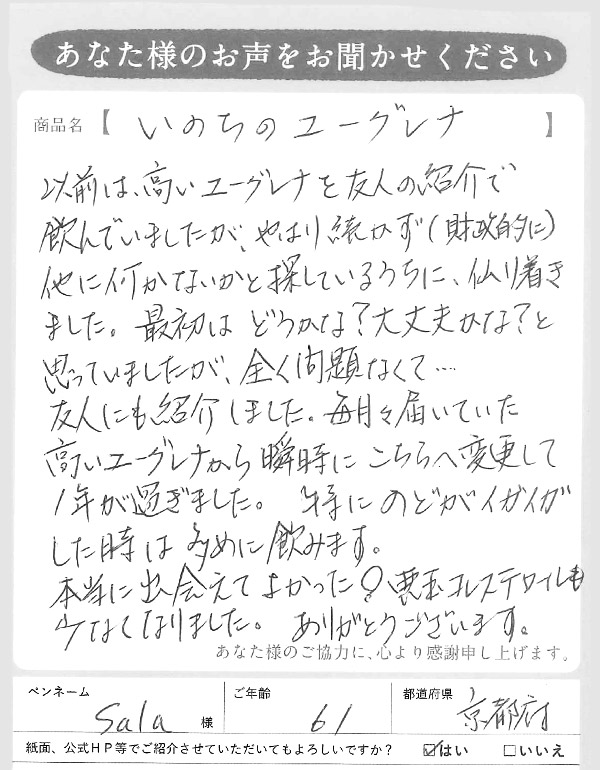 あなた様のお声をお聞かせください
商品名【 いのちのユーグレナ 】
以前は、高いユーグレナを友人の紹介で
飲んでいましたが、やはり続かず(財政的に)
他に何かないかと探しているうちに、仏り着き
ました。最初は どうかな?大丈夫かな?と
思っていましたが、全く問題なくて…
友人にも紹介しました。毎月々届いていた
高いユーグレナから瞬時に こちらへ変更して
1年が過ぎました。 特に のどがイガイガ
した時は 多めに飲みます。
本当に出会えてよかった! 悪玉コレステロールも
少なくなりました。 ありがとうございます。
あなた様のご協力に、心より感謝申し上げます。
ペンネーム Sala 様 ご年齢 61 都道府県 京都府
紙面、公式HP等でご紹介させていただいてもよろしいですか? ☑はい □いいえ